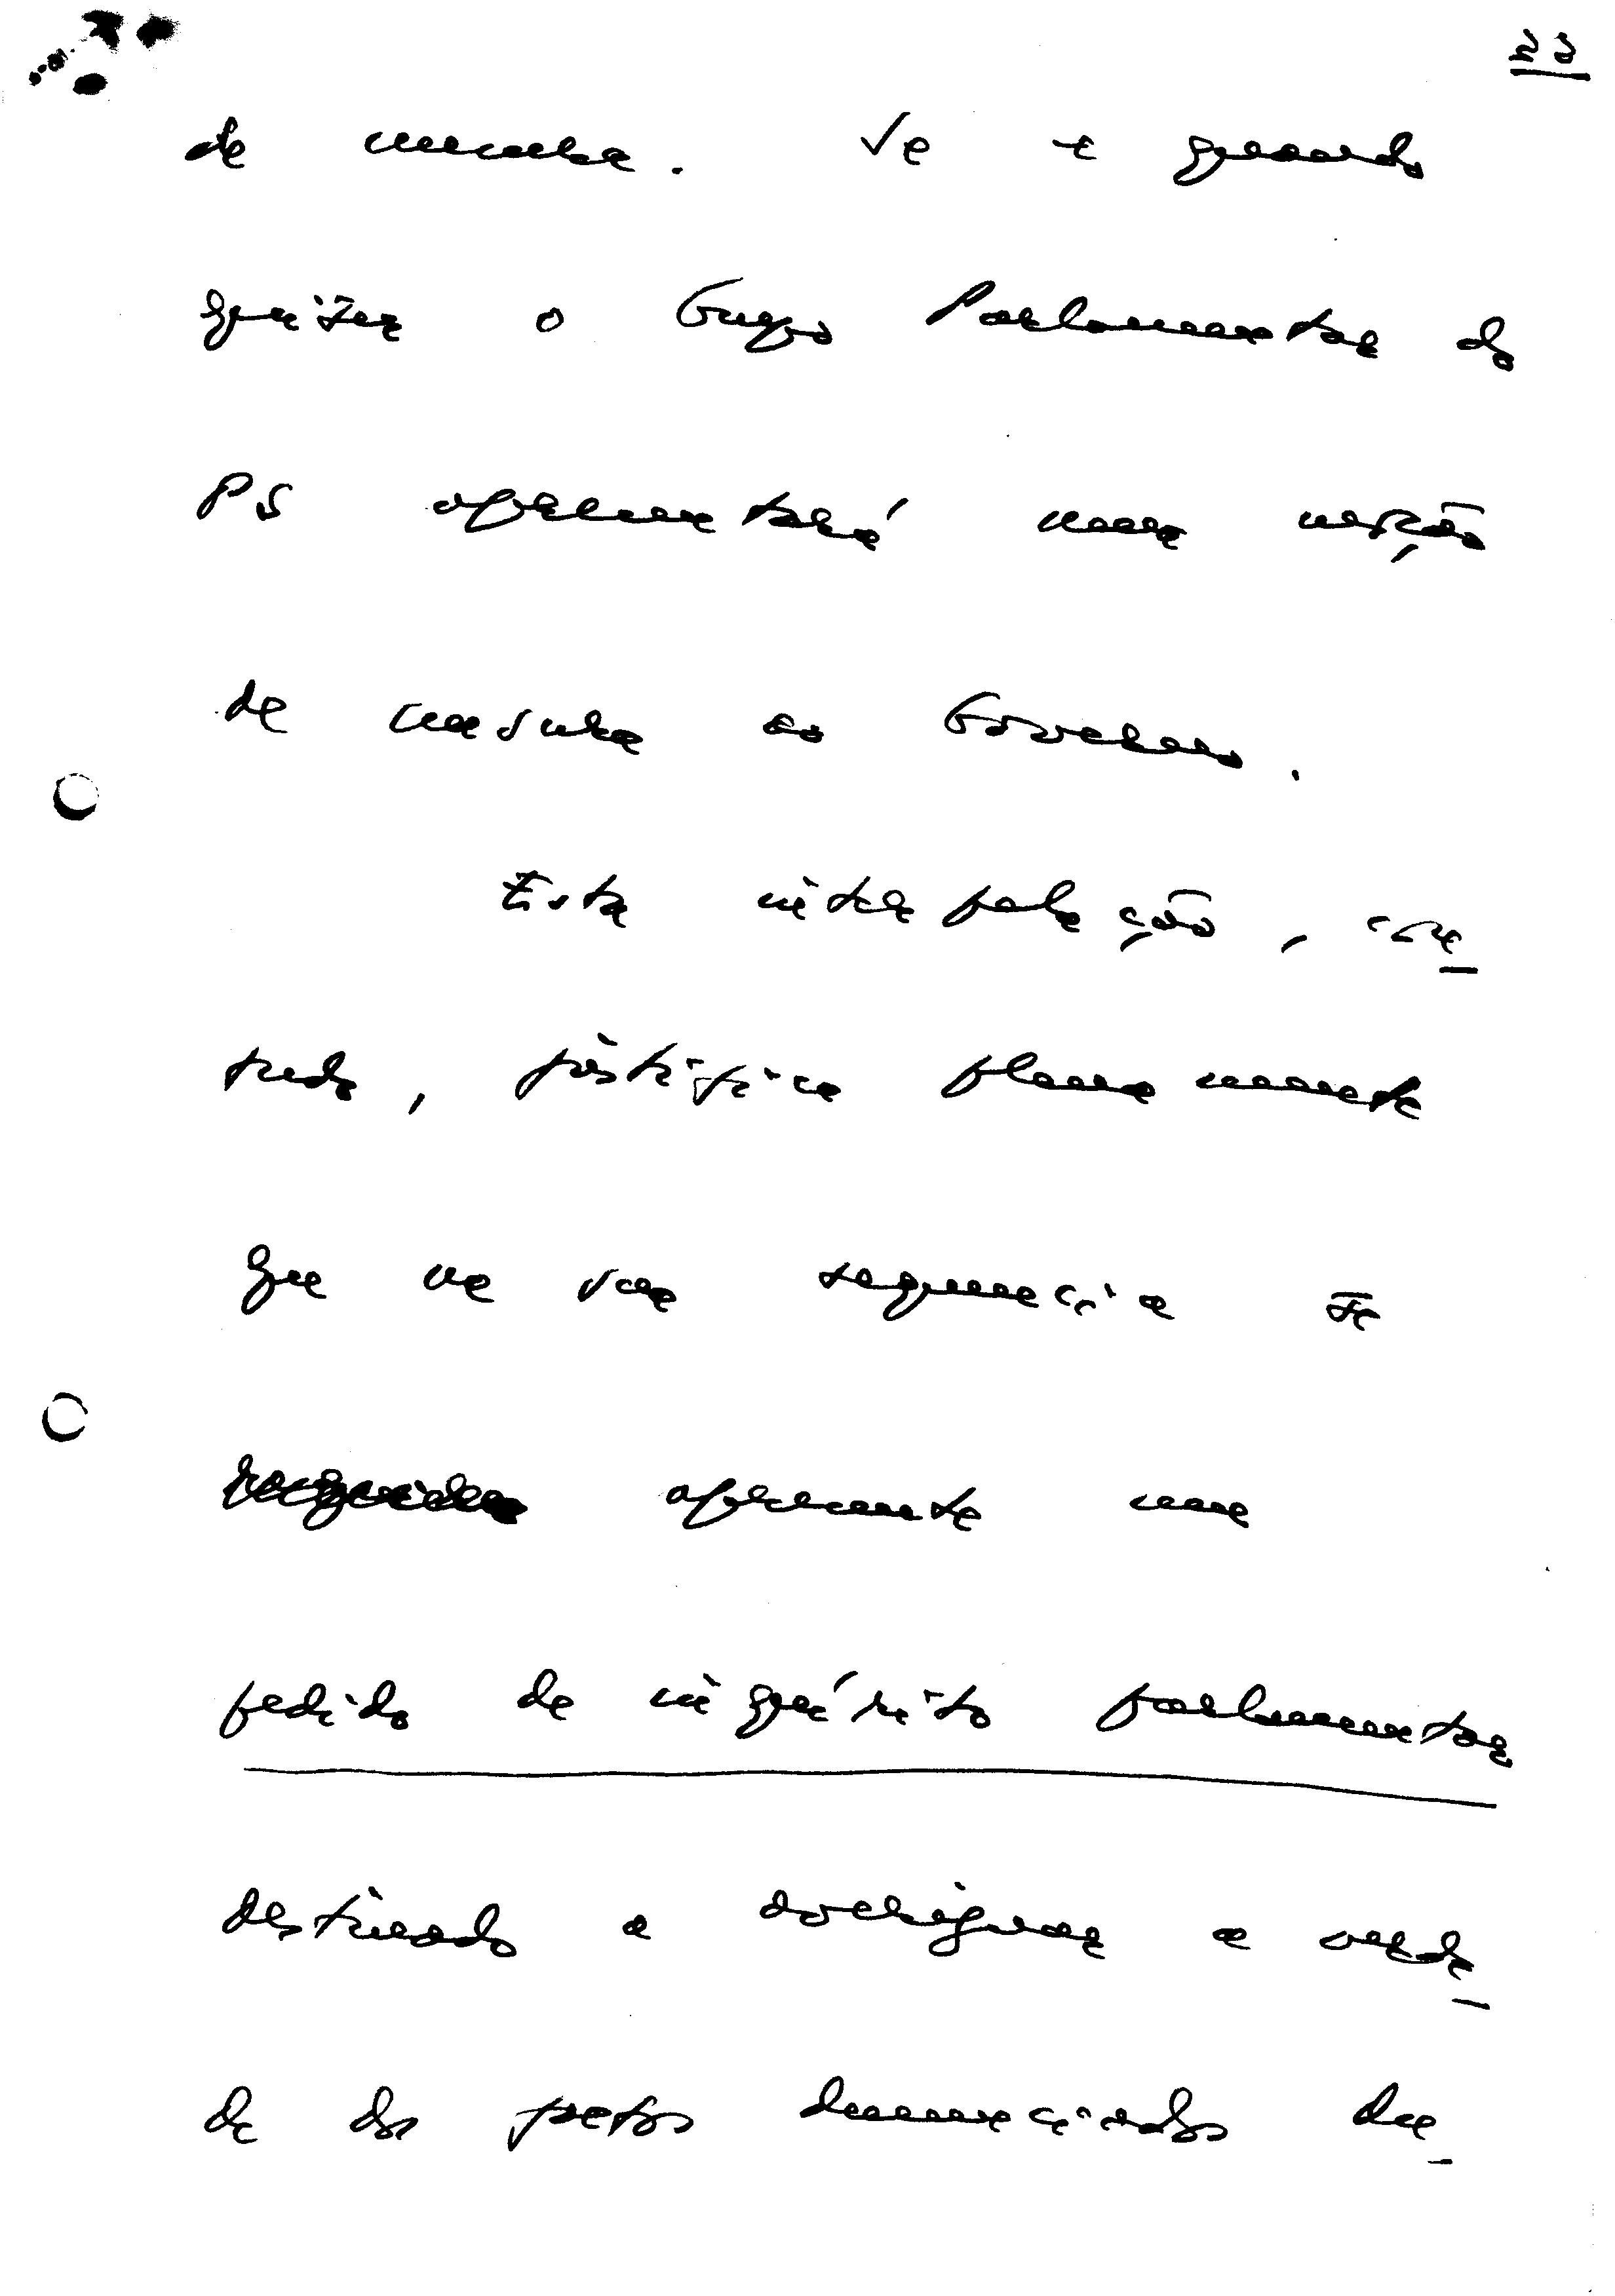 23
de censura. Se e quando
quizer o Grupo Parlamentar do
PS apresentará uma moção
de censura ao Governo.
Esta interpelação, con
tudo, justifica plenamente
que na sua sequência se
apresente um
pedido de inquérito parlamentar
destinado a averiguar a verda
de dos factos denunciados du